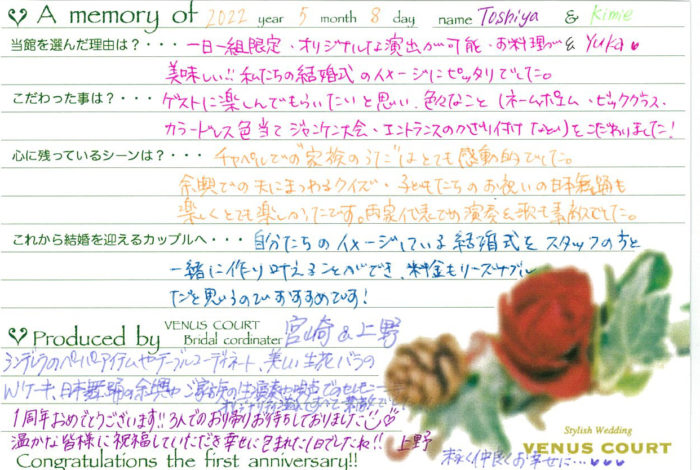 A memory of 2022 year 5 month 8 day name Toshiya & Kimie
& Yuka
当館を選んだ理由は？・・・一日一組限定・オリジナルな演出が可能・お料理が
美味しい!! 私たちの結婚式のイメージにピッタリでした。
こだわった事は？・・・ゲストに楽しんでもらいたいと思い、色々なこと（ネームポエム・ビッググラス・
カラードレス色当てジャンケン大会・エントランスのかざり付けなどい）をこだわりました！
心に残っているシーンは？・・・チャペルでの"家族のうた"はとても感動的でした。
余興での天にまつわるクイズ・子どもたちのお祝いの日本舞踊も
楽しくとても楽しかったです。両家代表での演奏&歌も素敵でした。
これから結婚を迎えるカップルへ・・・自分たちのイメージしている結婚式をスタッフの方と
一緒に作り叶えることができ、料金もリーズナブル
だと思うのでおすすめです！
Produced by VENUS COURT Bridal cordinater 宮崎&上野
シンデレラのペーパーアイテムやテーブルコーディネート、美しい生花バラの
Wケーキ、日本舞踊の余興や ご家族の
1周年おめでとうございます!! 3人でのお帰りお待ちしておりました
温かな皆様に祝福していただき幸せに包まれた1日でしたね!! 上野
末永く仲良くお幸せに…
Stylish Wedding
VENUS COURT
Congratulations the first anniversary!!